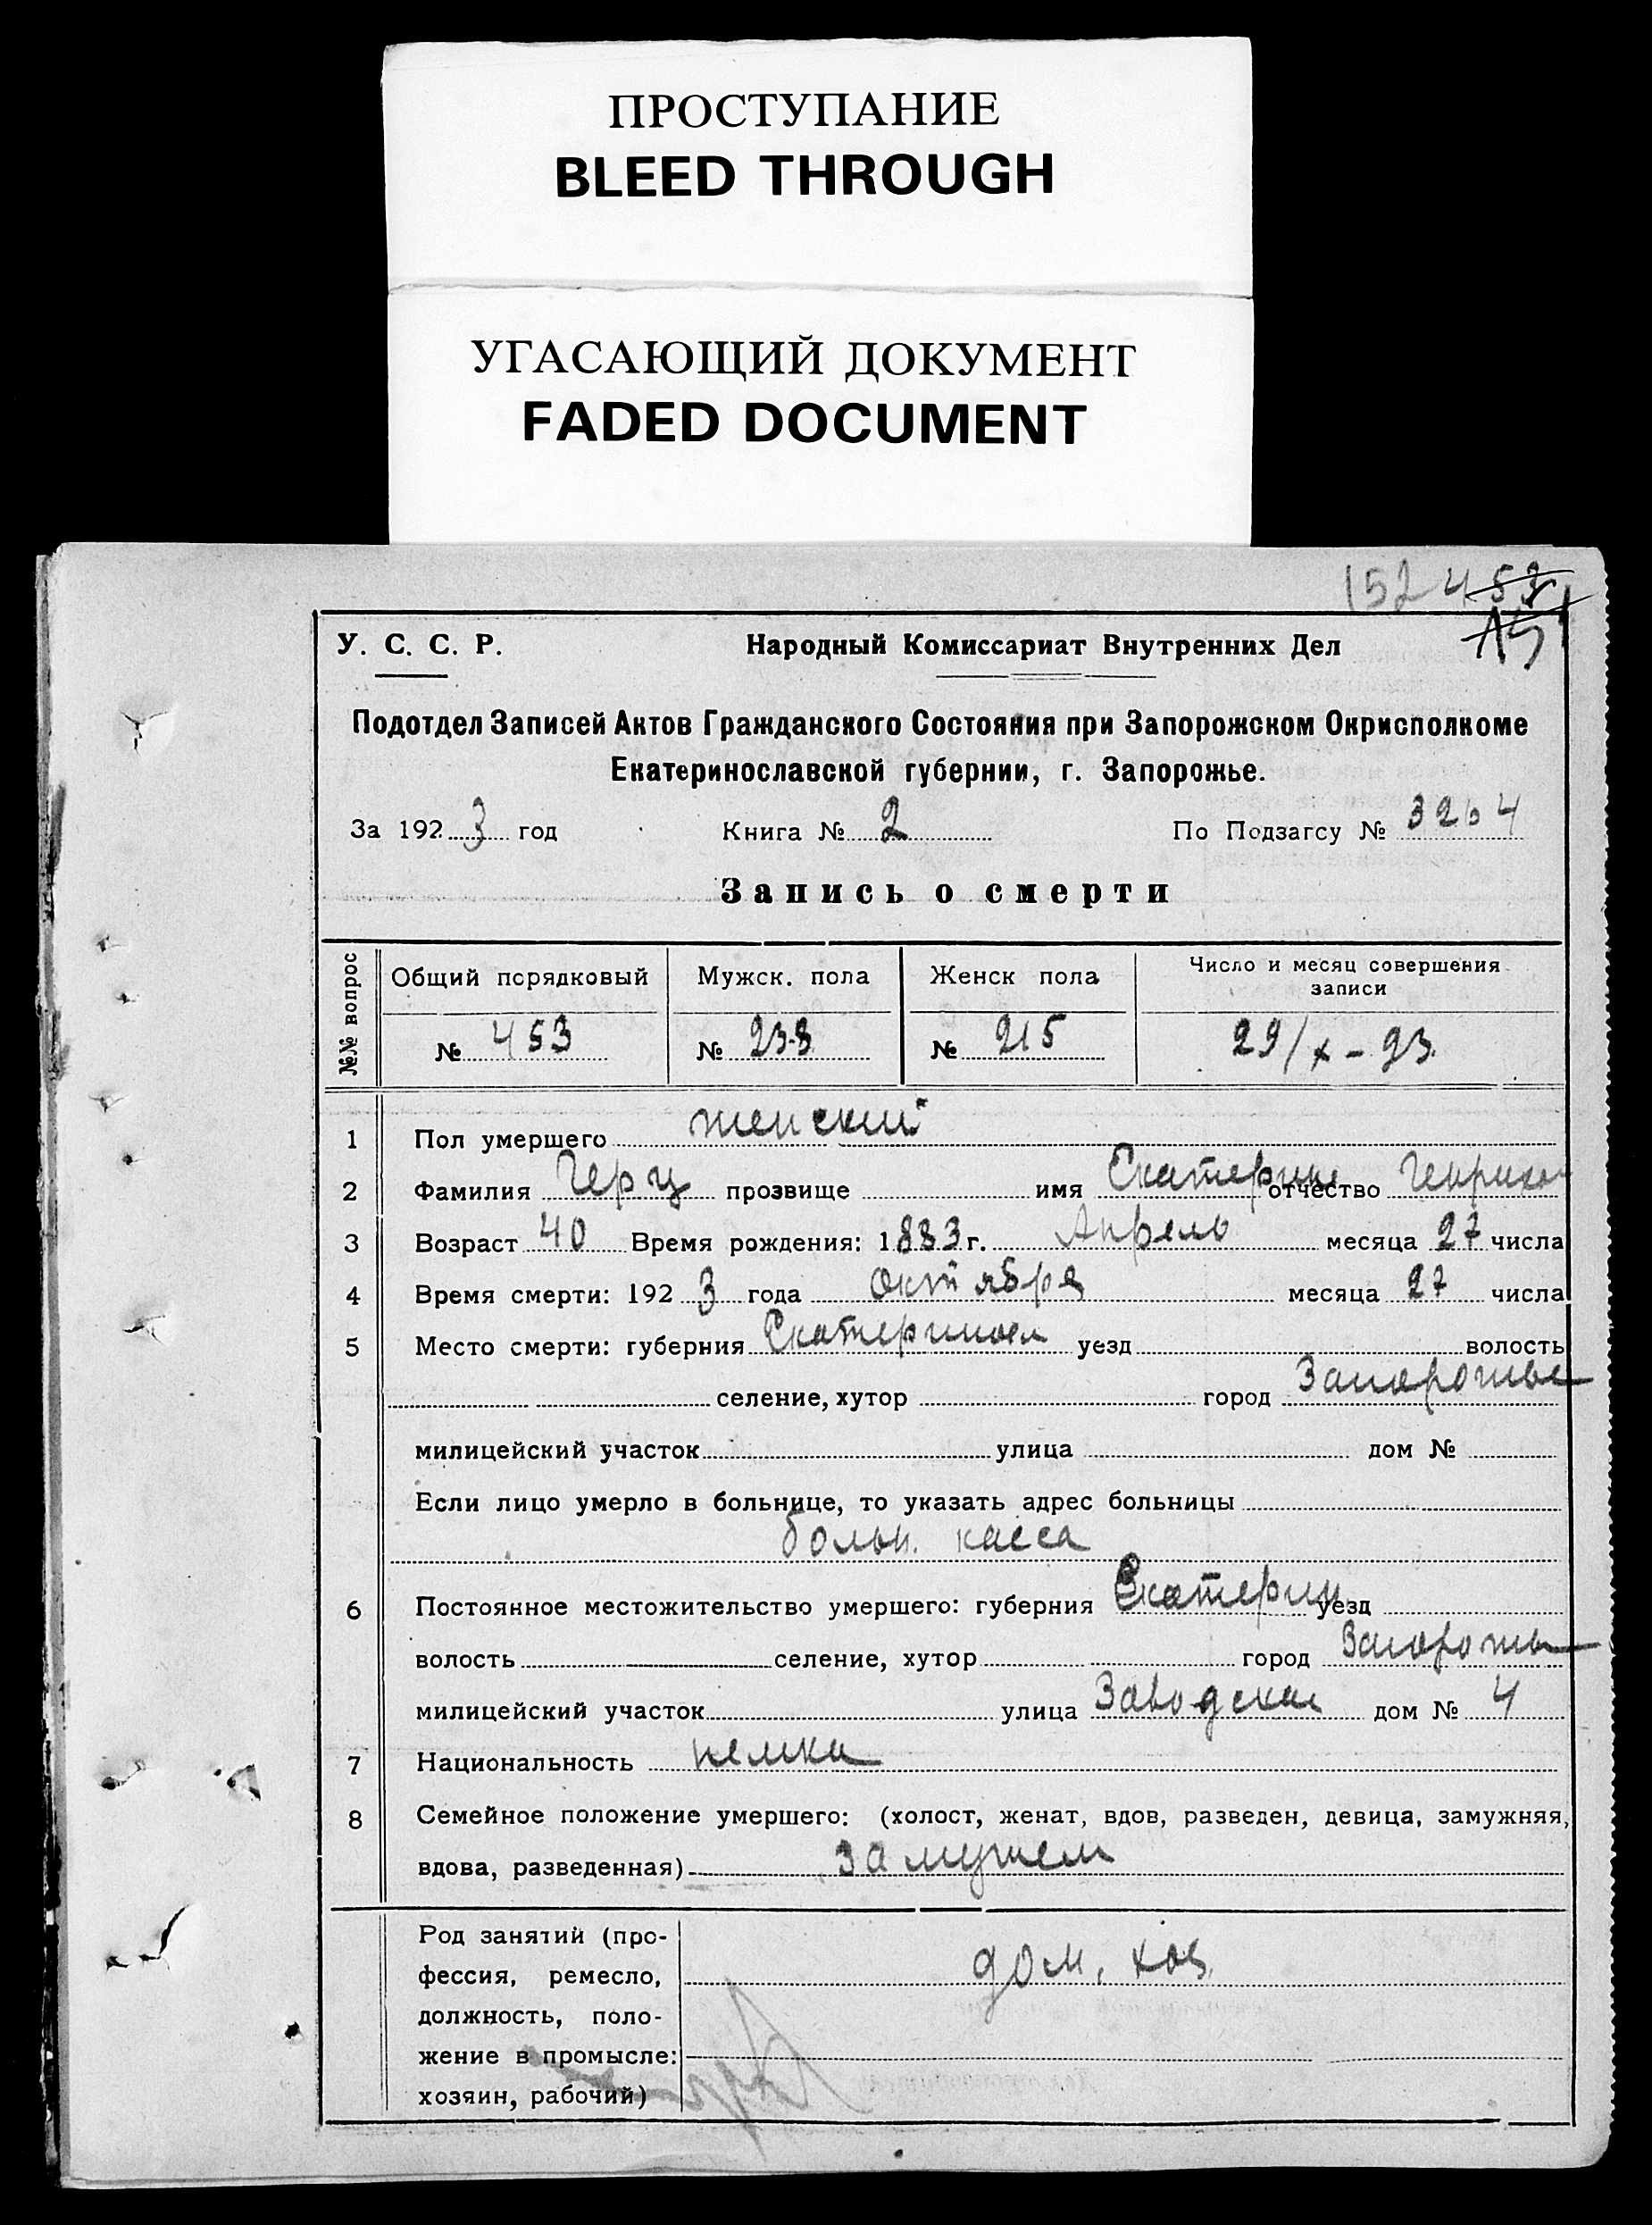 ПРОСТУПАНИЕ
BLEED THROUGH
УГАСАЮЩИЙ ДОКУМЕНТ
FADED DOCUMENT
152 453
151
У. С. С. Р. Народный Комиссариат Внутренних Дел
Подотдел Записей Актов Гражданского Состояния при Запорожском Окрисполкоме
Екатеринославской губернии, г. Запорожье.
За 1923 год Книга № 2 По Подзагсу № 3264
Запись о смерти
№№ вопрос Общий порядковый Мужск. пола Женск пола Число и месяц совершения
записи
№ 453 № 238 № 215 29/X-23.
1 Пол умершего женский
2 Фамилия Герц прозвище имя Екатерина отчество Генрихов
3 Возраст 40 Время рождения: 1883 г. Апрель месяца 27 числа
4 Время смерти: 1923 года октября месяца 27 числа
5 Место смерти: губерния Екатериносл уезд волость
селение, хутор город Запорожье
милицейский участок улица дом №
Если лицо умерло в больнице, то указать адрес больницы
больн. касса
6 Постоянное местожительство умершего: губерния Екатерин уезд
волость селение, хутор город Запорожье
милицейский участок улица Заводская дом № 4
7 Национальность немка
8 Семейное положение умершего: (холост, женат, вдов, разведен, девица, замужняя,
вдова, разведенная) замужем
Род занятий (про-
фессия, ремесло,
должность, поло-
жение в промысле:
хозяин, рабочий)
дом. хоз.